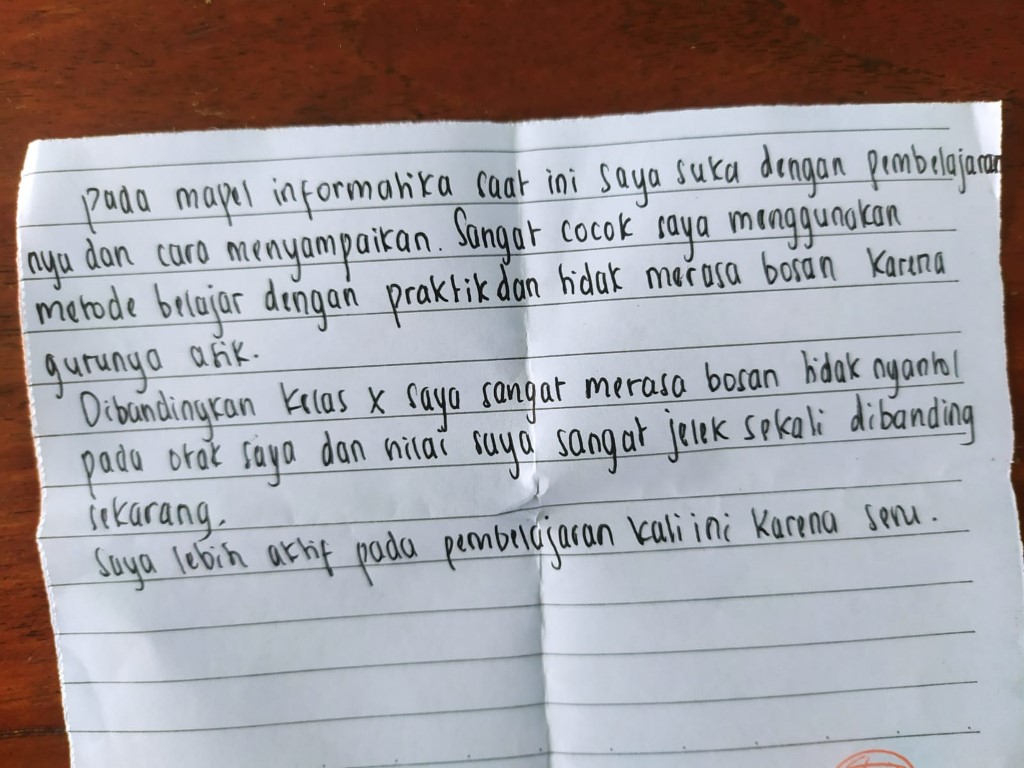 pada mapel informatika saat ini saya suka dengan pembelajaran
nya dan cara menyampaikan. Sangat cocok saya menggunakan
metode belajar dengan praktik dan tidak merasa bosan karena
gurunya asik.
Dibandingkan kelas X saya sangat merasa bosan tidak nyantol
pada otak saya dan nilai saya sangat jelek sekali dibanding
sekarang.
Saya lebih aktif pada pembelajaran kali ini karena seru.